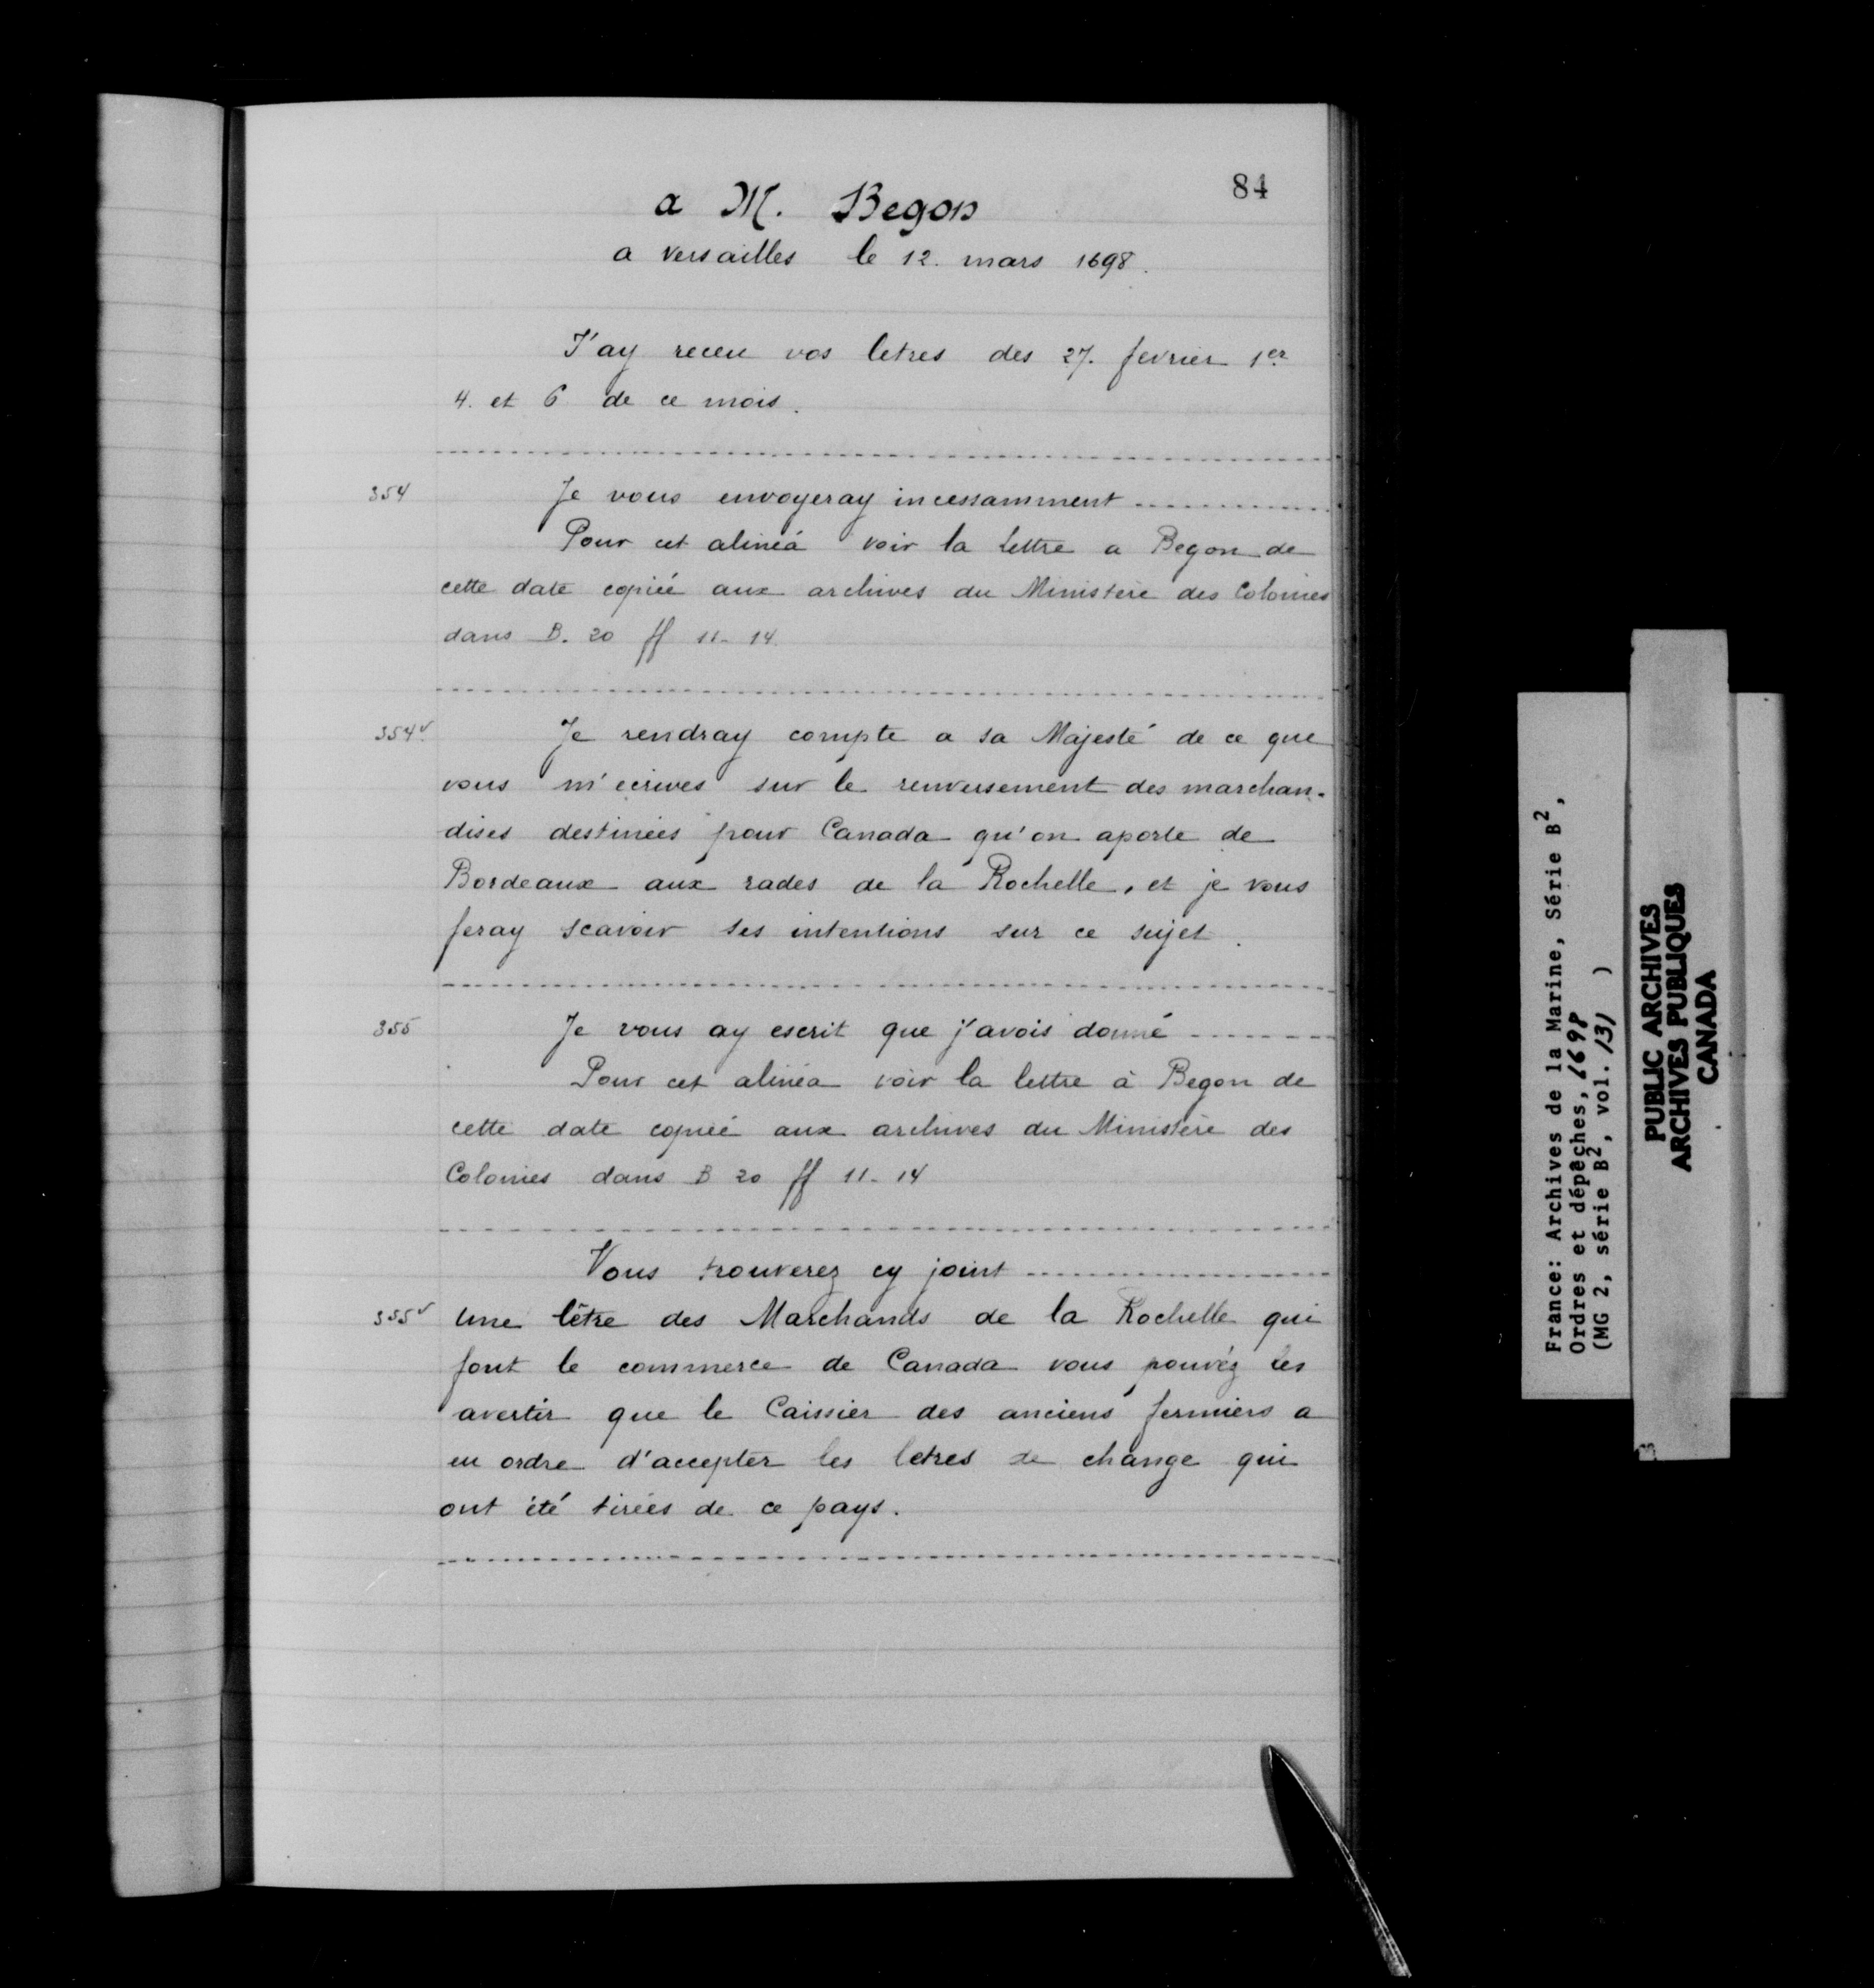 84
a M. Begon
a versailles le 12. mars 1698.
J'ay receu vos letres des 27. fevrier 1er
4. et 6 de ce mois.
354
Je vous envoyeray incessamment
Pour cet alinéa voir la lettre a Begon de
cette date copiée aux archives du Ministère des Colonies
dans B. 20 ff 11-14.
354v
Je rendray compte a sa Majesté de ce que
vous m'écrives sur le renversement des marchan-
dises destinées pour Canada qu'on aporte de
Bordeaux aux rades de la Rochelle, et je vous
feray scavoir ses intentions sur ce sujet.
355
Je vous ay escrit que j'avois donné
Pour cet alinéa voir la lettre à Begon de
cette date copiée aux archives du Ministère des
Colonies dans B 20 ff 11-14
Vous trouverez cy joint
355v
une lêtre des Marchands de la Rochelle qui
font le commerce de Canada vous pouvéz les
avertir que le Caissier des anciens fermiers a
eu ordre d'accepter les letres de change qui
ont été tirées de ce pays.
France: Archives de la Marine, Série B2,
Ordres et dépêches, 1698
(MG 2, série B2, vol. 131 )
PUBLIC ARCHIVES
ARCHIVES PUBLIQUES
CANADA